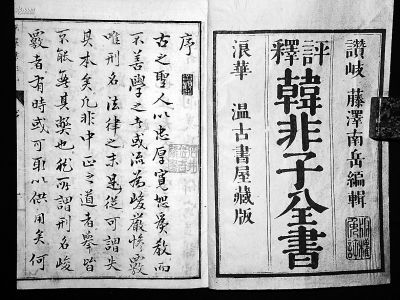 讚岐 藤澤南岳編輯
評釋
韓非子全書
浪華 温古書屋藏版
序
古之聖人以忠厚寬恕為教而
不善學之者或流為峻嚴慘覈
唯刑名法律之末是従可謂失
其本矣凡非中正之道者擧皆
不能無其獘也然所謂刑名峻
覈者有時或可取以供用矣何